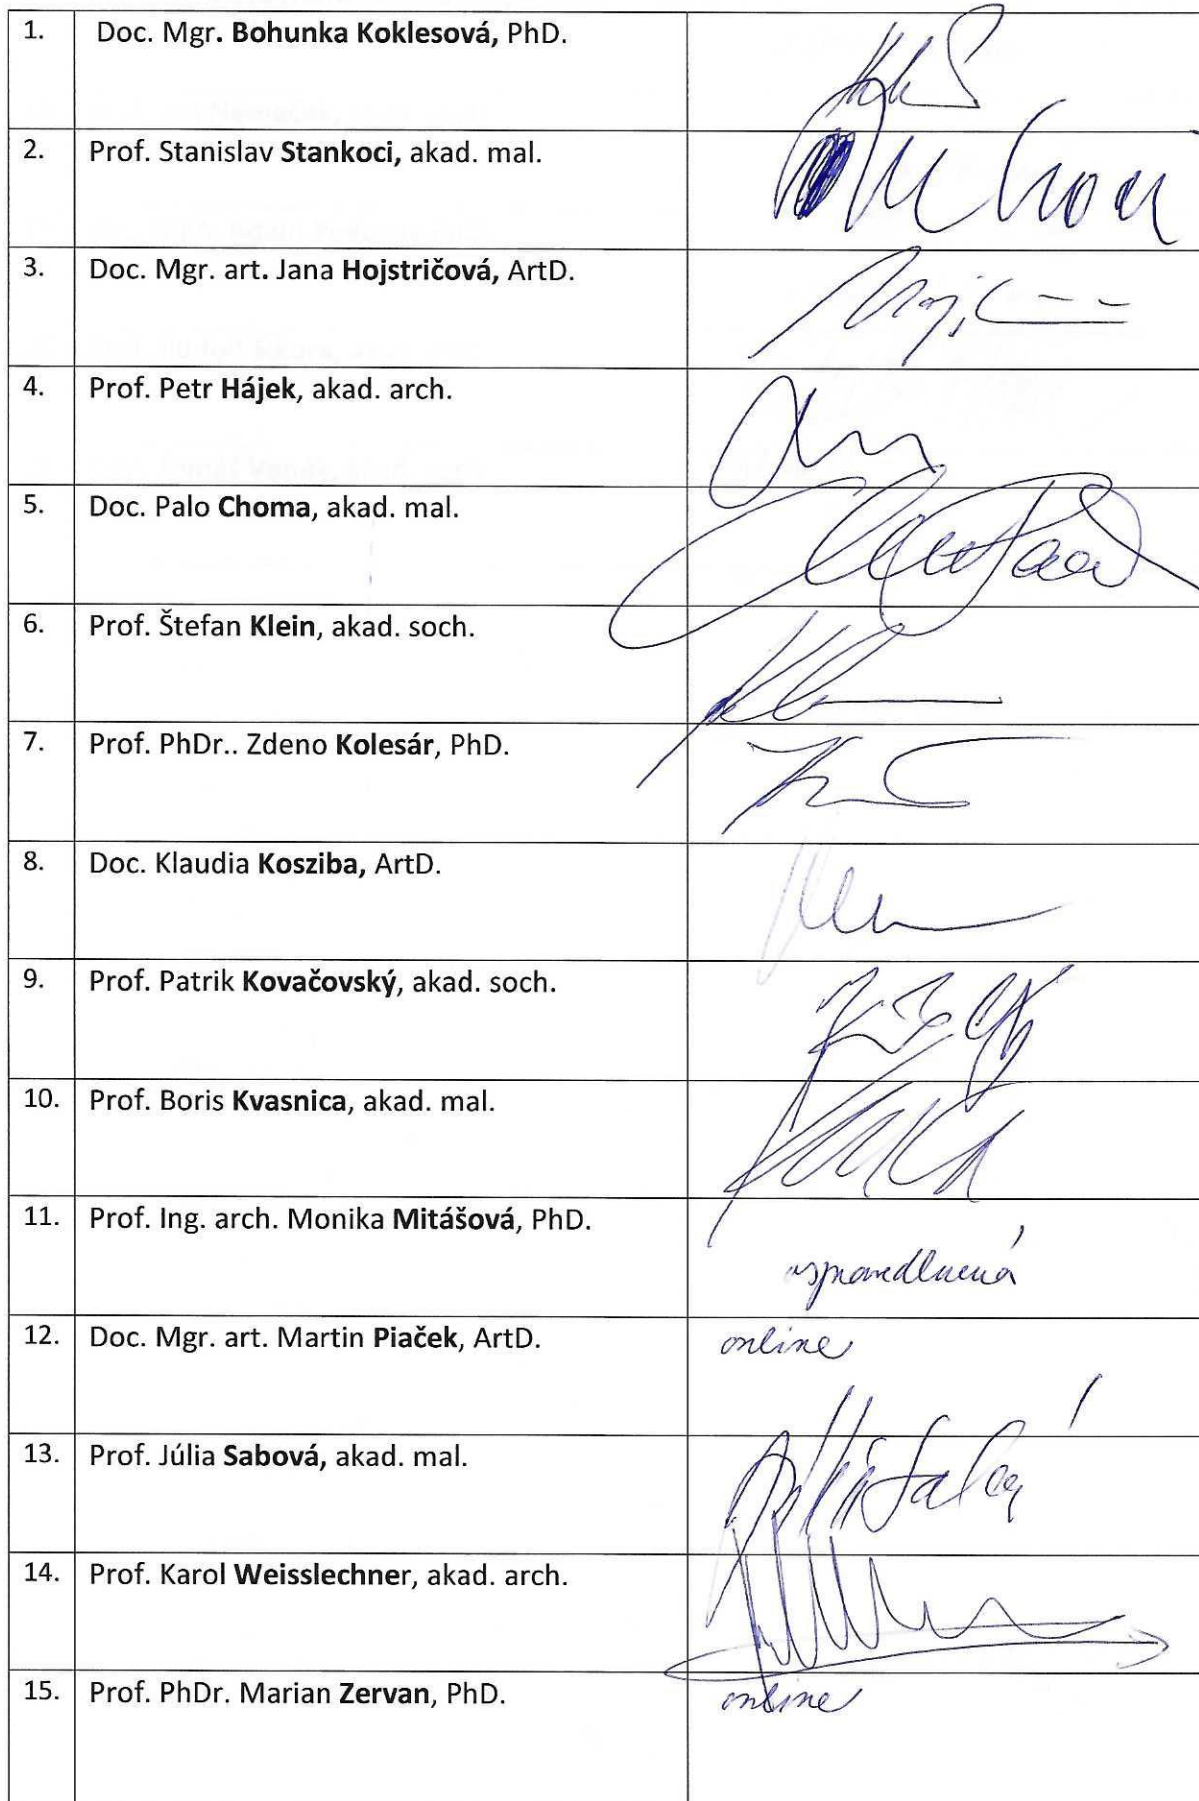 1. Doc. Mgr. Bohunka Koklesová, PhD.
2. Prof. Stanislav Stankoci, akad. mal.
3. Doc. Mgr. art. Jana Hojstričová, ArtD.
4. Prof. Petr Hájek, akad. arch.
5. Doc. Palo Choma, akad. mal.
6. Prof. Štefan Klein, akad. soch.
7. Prof. PhDr.. Zdeno Kolesár, PhD.
8. Doc. Klaudia Kosziba, ArtD.
9. Prof. Patrik Kovačovský, akad. soch.
10. Prof. Boris Kvasnica, akad. mal.
11. Prof. Ing. arch. Monika Mitášová, PhD.
ospravedlnená
12. Doc. Mgr. art. Martin Piaček, ArtD. online
13. Prof. Júlia Sabová, akad. mal.
14. Prof. Karol Weisslechner, akad. arch.
15. Prof. PhDr. Marian Zervan, PhD. online